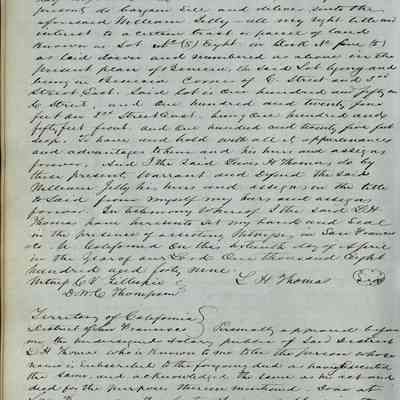 present do bargain sell and deliver unto the
aforesaid William Jelly all my right title and
interest to a certain tract or parcel of land
Known as Lot No (8) Eight, in Block No five (5)
as laid down and numbered as above in the
present plan of Benicia the said Lot lying and
being on the corner of C Street and 3rd
Street East. Said Lot is One hundred and fifty on
C Street, and One hundred and twenty five
feet on 3rd Street East. being One hundred and
fifty feet front and one hundred and twenty five feet
deep. To have and hold with all its appurtenances
and advantages to him and his heirs and assigns
forever. And I the said Lewis H Thomas, do by
these present, Warrant and Defend the said
William Jelly his heirs and assigns, in the title
to said from myself my heirs and assigns
forever. In testimony whereof I the said L H
Thomas have hereunto set my hand and seal
in the presence of attesting Witnesses, in San Francis
co. U. California On this sixteenth day of April
in the Year of our Lord One thousand Eight
hundred and forty nine.
Witness C V Gillespie L H Thomas
D.W.C. Thompson
Territory of California
District of San Francisco Personally appeared before
me the undersigned notary public of said District
L H Thomas who is known to me to be the person whose
name is subscribed to the foregoing deed as having executed
the same, and acknowledged the same as his act and
deed for the purposes therein mentioned. Done at